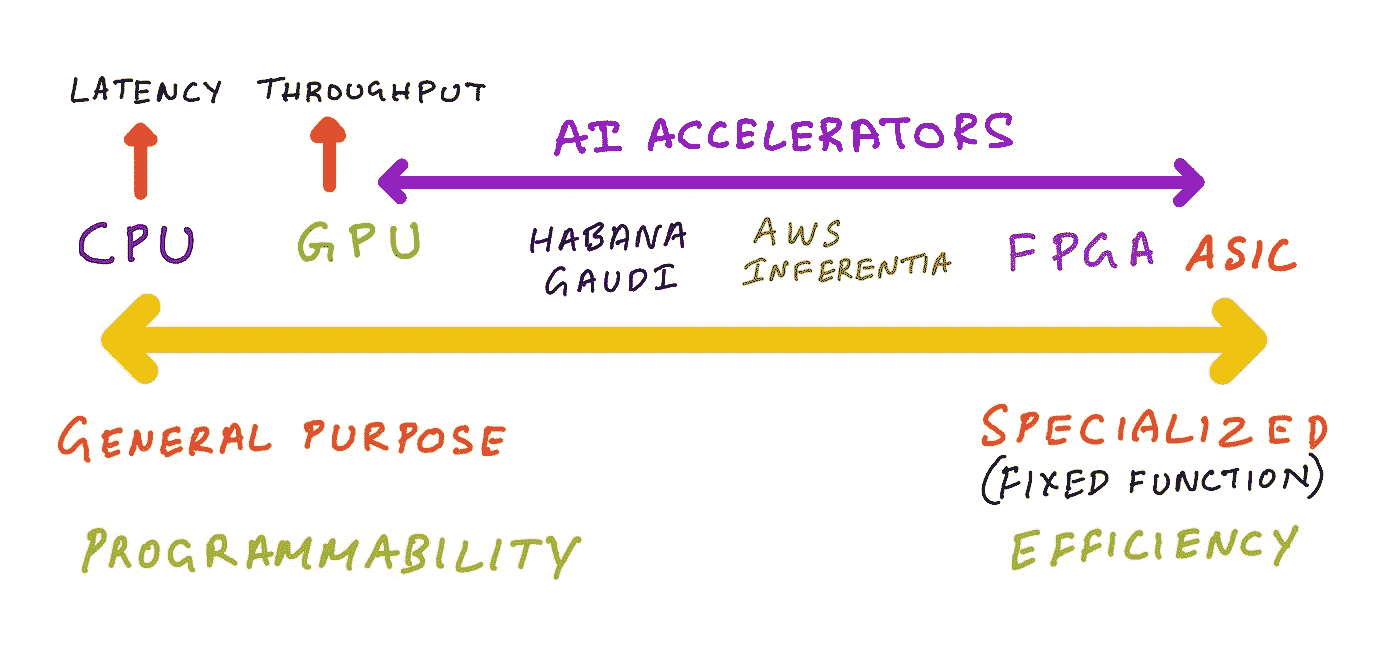 LATENCY THROUGHPUT
AI ACCELERATORS
CPU GPU HABANA GAUDI AWS INFERENTIA FPGA ASIC
GENERAL PURPOSE
SPECIALIZED
(FIXED FUNCTION)
PROGRAMMABILITY
EFFICIENCY